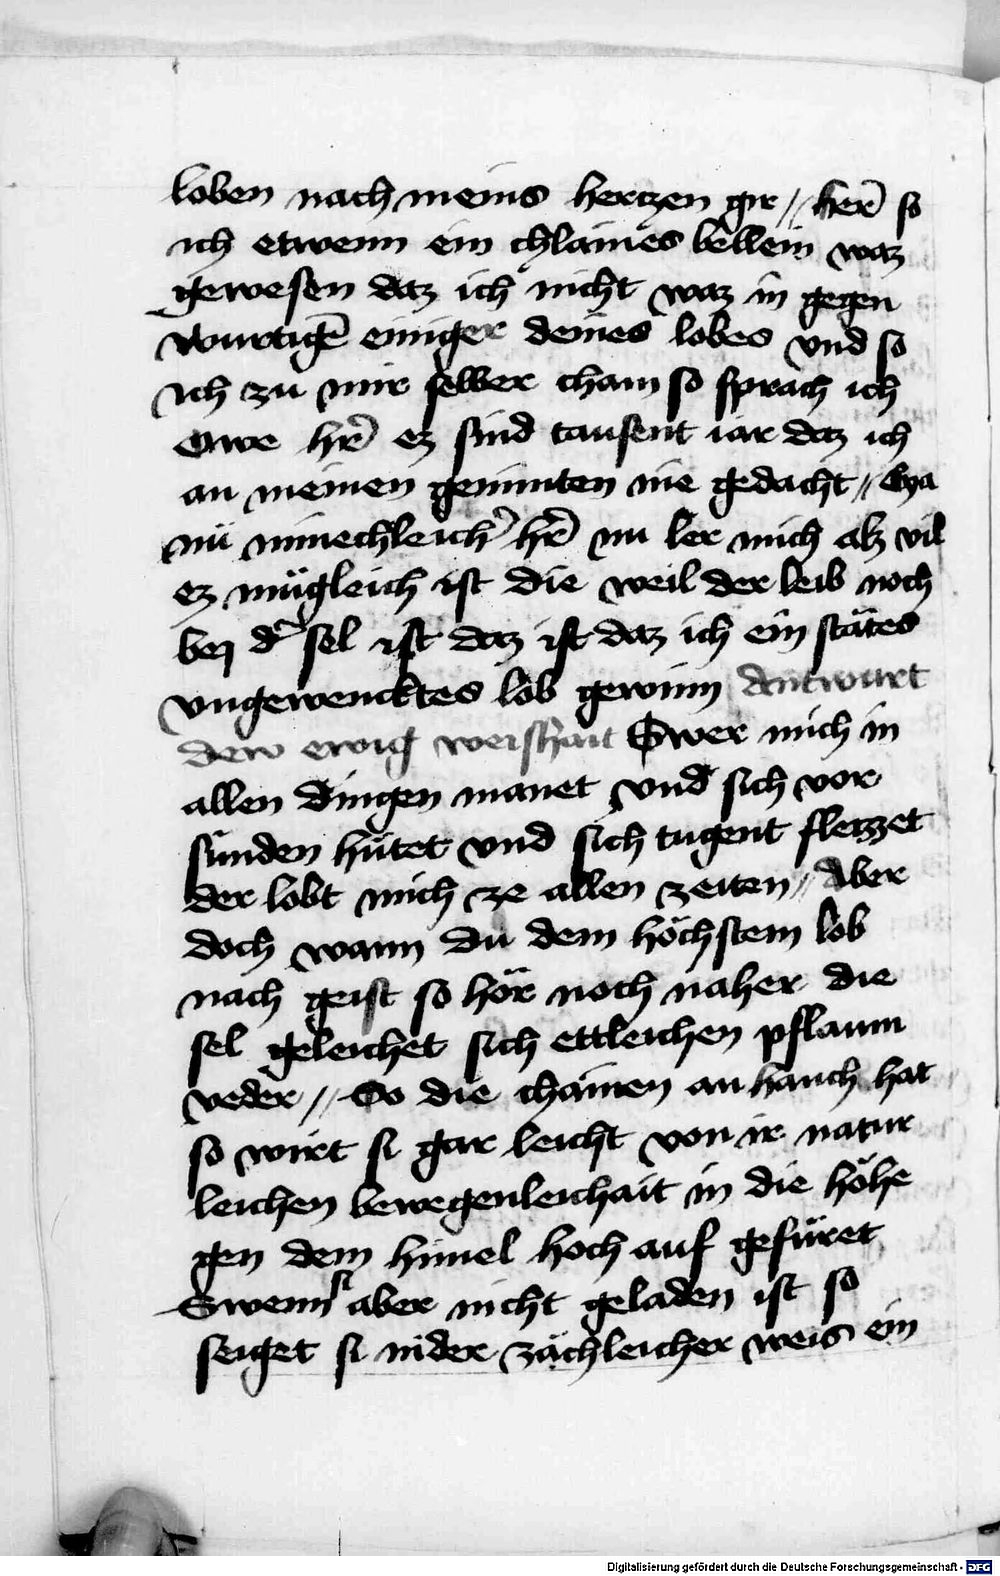 loben nach meins hertzen gir // her̄ so
ich etwenn ein chlaines bellein waz
gewesen daz ich nicht waz in gegen
wurtigē einiger deines lobes vnd so
ich zu mir selber cham so sprach ich
Owe hr̄ ez sind tausent iar daz ich
an meinen genimten nie gedacht // Eya
nü minechleich' hr̄ nu ler mich alz vil
ez mügleich ist die weil der leib noch
bei d' sel ist daz ist daz ich ein stätes
vngewencktes lob gewinn Antwurt
dew ewig weishait Swer mich in
allen dingen manet vnd sich vor
sünden hütet vnd sich tugent fleizzet
der lobt mich ze allen zeiten // Aber
doch wann du dem höchstem lob
nach geist so hör noch naher die
sel geleichet sich ettleichen pflaum
veder // So die chainen anhauch hat
so wirt si gar leicht von ir natur
leichen bewegenleichait in die höhe
gen dem himel hoch auf gefüret
Swenn si aber nicht geladen ist so
seiget si nider zächleicher weis ein
Digitalisierung gefördert durch die Deutsche Forschungsgemeinschaft - DFG